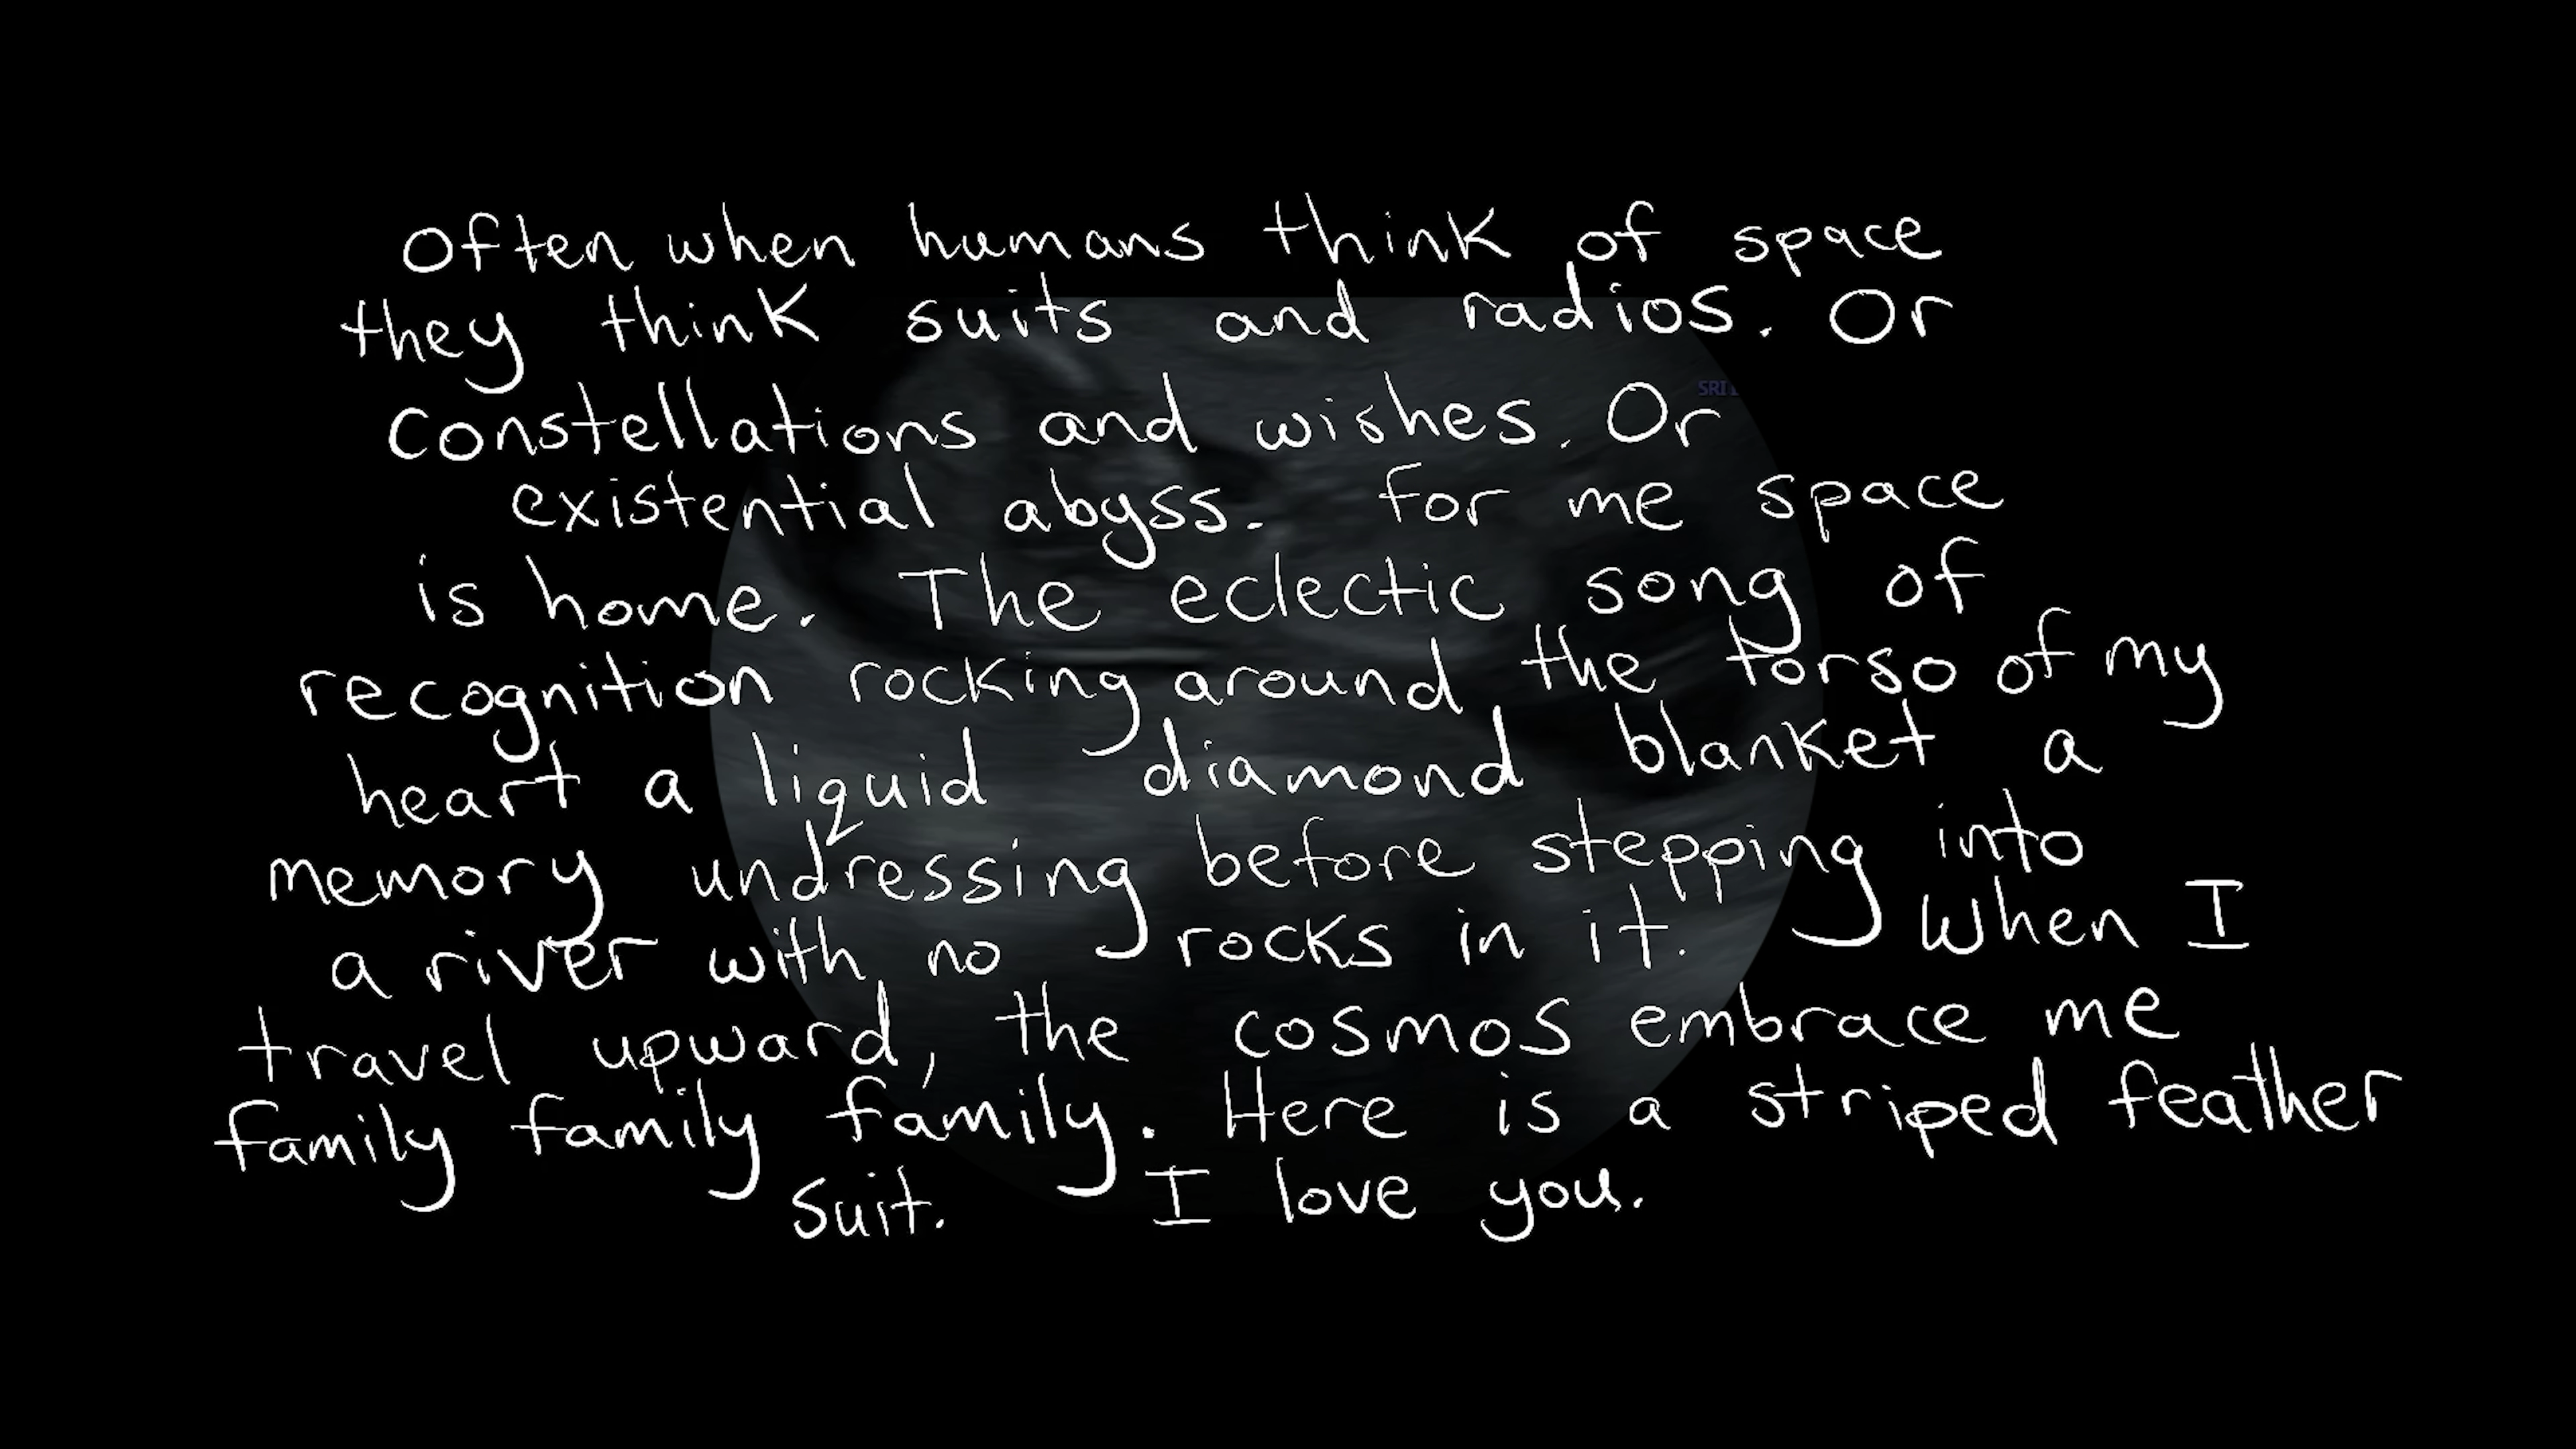 Often when humans think of space
they think suits and radios. Or
constellations and wishes. Or
existential abyss. For me space
is home. The eclectic song of
recognition rocking around the torso of my
heart a liquid diamond blanket a
memory undressing before stepping into
a river with no rocks in it. When I
travel upward, the cosmos embrace me
family family family. Here is a striped feather
suit. I love you.
SRI